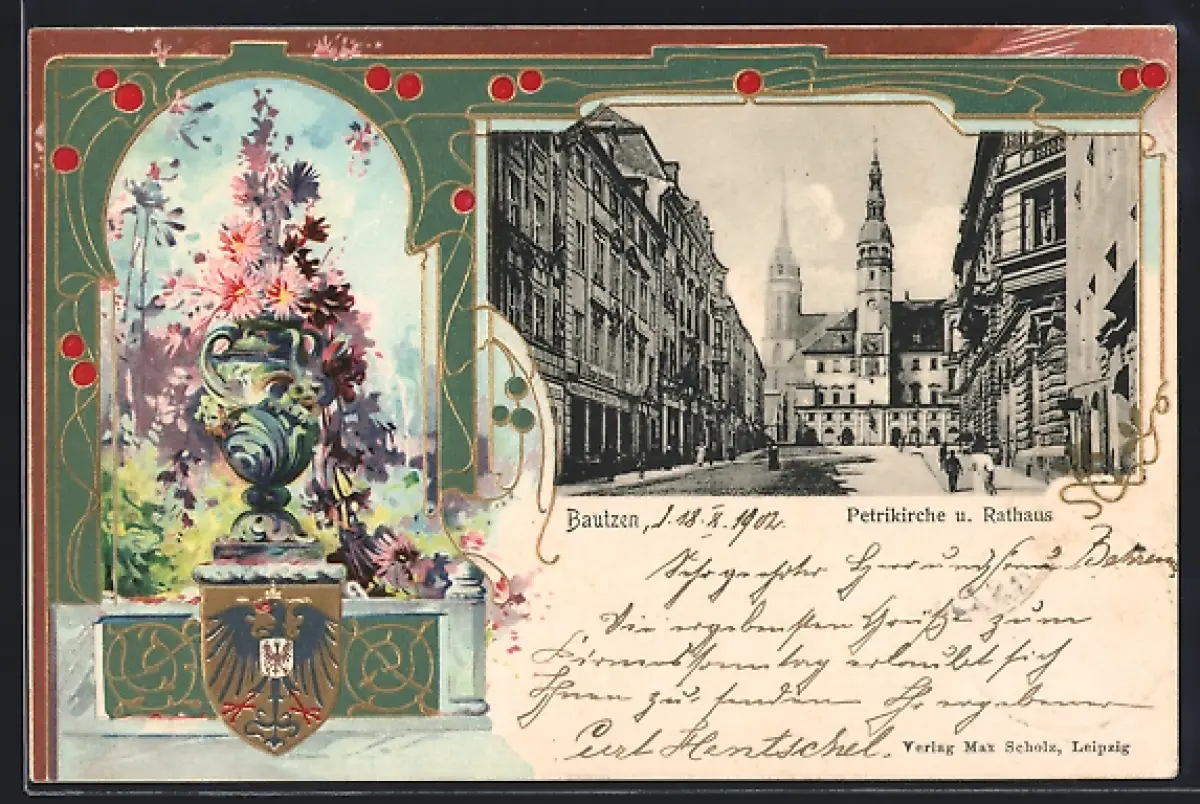 Bautzen, d. 18. X. 1902. Petrikirche u. Rathaus
Sehr geehrter Herr und Frau
Die ergebensten Grüße zum
Kirmessonntag erlaubt sich
Ihnen zu senden Ihr ergebener
Curt Hentschel. Verlag Max Scholz, Leipzig